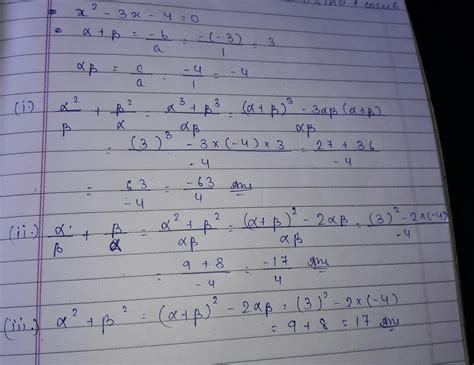 x² - 3x - 4 = 0
α + β = -b/a = -(-3)/1 = 3
αβ = c/a = -4/1 = -4
(i) α²/β + β²/α = α³ + β³/αβ = (α+β)³ - 3αβ(α+β)/αβ
= (3)³ - 3×(-4)×3/-4 = 27 + 36/-4
= 63/-4 = -63/4 Ans
(ii.) α/β + β/α = α² + β²/αβ = (α+β)² - 2αβ/αβ = (3)² - 2×(-4)/-4
= 9 + 8/-4 = -17/4 Ans
(iii.) α² + β² = (α+β)² - 2αβ = (3)² - 2×(-4)
= 9 + 8 = 17 Ans